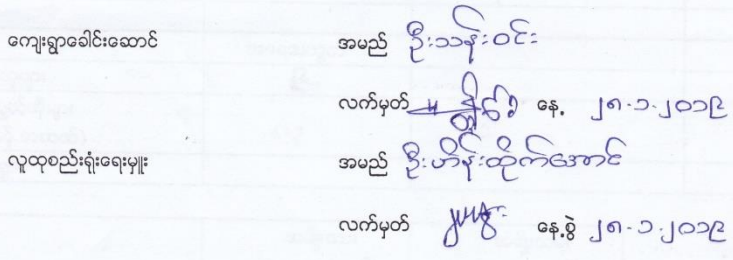 ကျေးရွာခေါင်းဆောင် အမည် ဦးသန်းဝင်း
လက်မှတ် နေ့ ၂၈-၁-၂၀၁၉
လူထုစည်းရုံးရေးမှူး အမည် ဦးဟိန်းထိုက်အောင်
လက်မှတ် နေ့စွဲ ၂၈-၁-၂၀၁၉